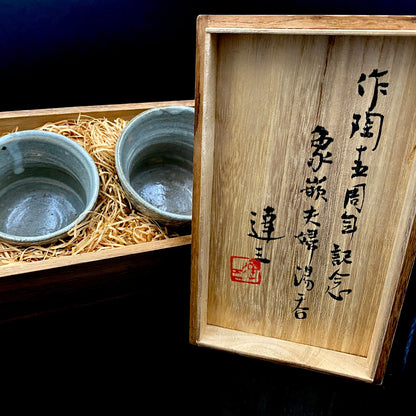 作陶五周年記念
象嵌夫婦湯呑
達三